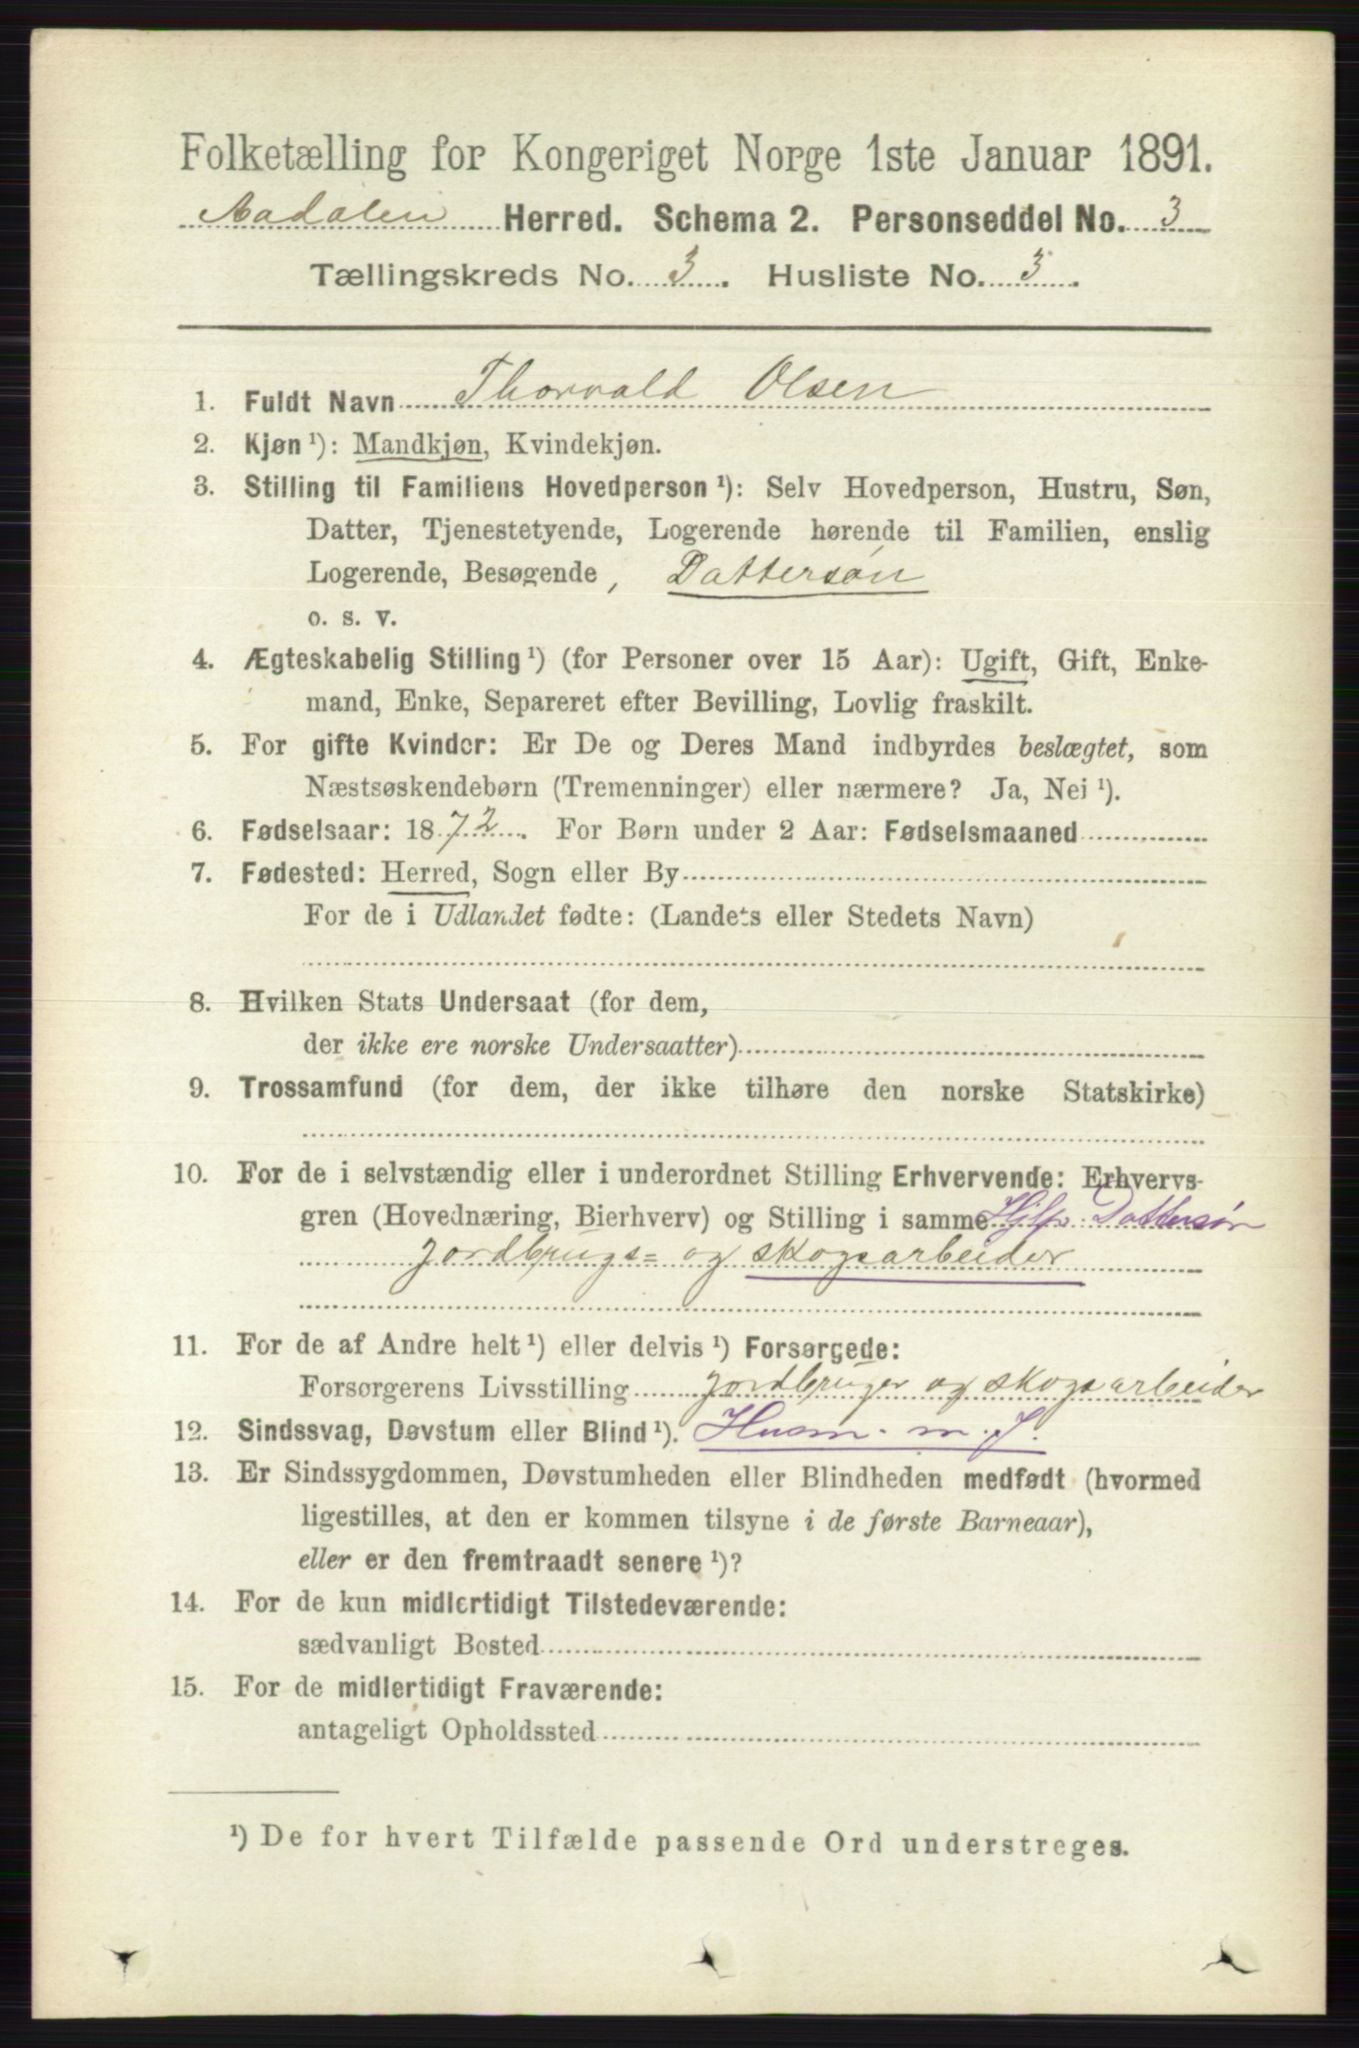 Folketælling for Kongeriget Norge 1ste Januar 1891.
Aadalen Herred. Schema 2. Personseddel No. 3
Tællingskreds No. 3. Husliste No. 3.
1. Fuldt Navn Thorvald Olsen
2. Kjøn ¹): Mandkjøn, Kvindekjøn.
3. Stilling til Familiens Hovedperson ¹): Selv Hovedperson, Hustru, Søn,
Datter, Tjenestetyende, Logerende hørende til Familien, enslig
Logerende, Besøgende, Dattersøn
o. s. v.
4. Ægteskabelig Stilling ¹) (for Personer over 15 Aar): Ugift, Gift, Enke-
mand, Enke, Separeret efter Bevilling, Lovlig fraskilt.
5. For gifte Kvinder: Er De og Deres Mand indbyrdes beslægtet, som
Næstsøskendebørn (Tremenninger) eller nærmere? Ja, Nei ¹).
6. Fødselsaar: 1872. For Børn under 2 Aar: Fødselsmaaned
7. Fødested: Herred, Sogn eller By
For de i Udlandet fødte: (Landets eller Stedets Navn)
8. Hvilken Stats Undersaat (for dem,
der ikke ere norske Undersaatter)
9. Trossamfund (for dem, der ikke tilhøre den norske Statskirke)
10. For de i selvstændig eller i underordnet Stilling Erhvervende: Erhvervs-
gren (Hovednæring, Bierhverv) og Stilling i samme Hjlp. Dattersøn
Jordbrugs- og skogsarbeider
11. For de af Andre helt ¹) eller delvis ¹) Forsørgede:
Forsørgerens Livsstilling Jordbruger og skogsarbeider
12. Sindssvag, Døvstum eller Blind ¹). Husm. m. J.
13. Er Sindssygdommen, Døvstumheden eller Blindheden medfødt (hvormed
ligestilles, at den er kommen tilsyne i de første Barneaar),
eller er den fremtraadt senere ¹)?
14. For de kun midlertidigt Tilstedeværende:
sædvanligt Bosted
15. For de midlertidigt Fraværende:
antageligt Opholdssted
¹) De for hvert Tilfælde passende Ord understreges.